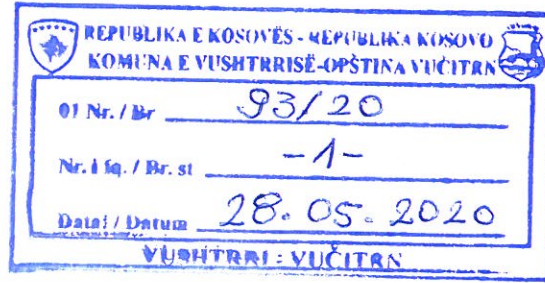 REPUBLIKA E KOSOVËS - REPUBLIKA KOSOVO
KOMUNA E VUSHTRRISË-OPŠTINA VUČITRN
01 Nr. / Br 93/20
Nr. i fq. / Br. st -1-
Data / Datum 28. 05. 2020
VUSHTRRI : VUČITRN